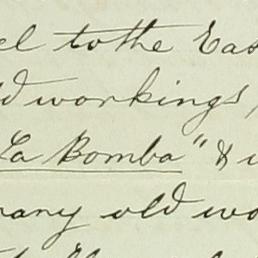 el to the Eas
d workings,
La Bomba" &
many old wo